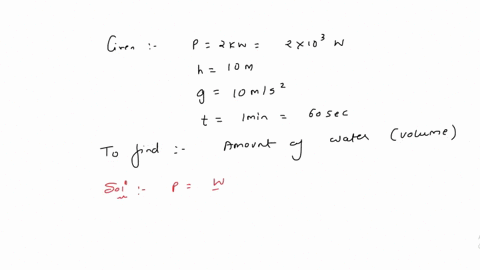 Given :- P = 2 KW = 2 x 10³ W
h = 10 m
g = 10 m/s²
t = 1 min = 60 sec
To find :- Amount of water (volume)
Solⁿ :- P = W